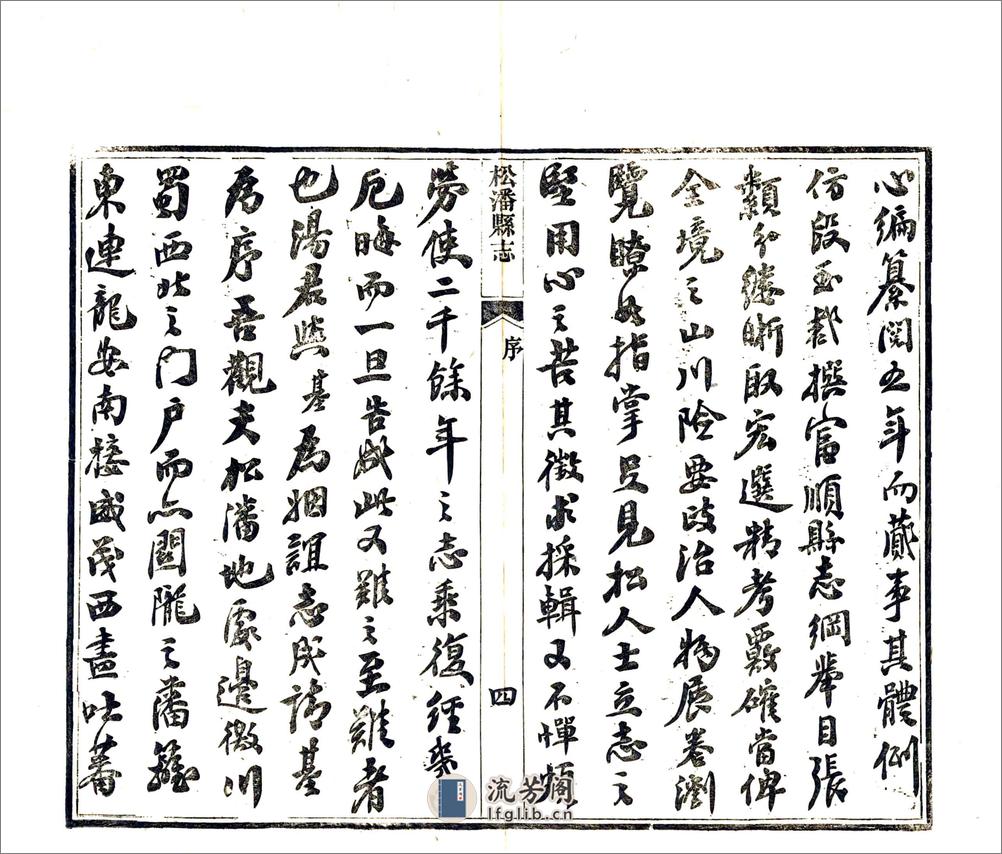 心編纂閱五年而蕆事其體例
仿段玉裁撰富順縣志綱舉目張
類分縷晰取宏選精考覈確當俾
全境之山川險要政治人物展卷瀏
覽瞭如指掌足見松人士立志之
堅用心之苦其徵求採輯又不憚煩
松潘縣志
序
四
勞使二千餘年之志乘復經幾
厄晦而一旦告成此又難之至難者
也湯君與基為姻誼志成請基
為序吾觀夫松潘地處邊徼川
蜀西北之門戶而亦關隴之藩籬
東連龍安南接威茂西盡吐蕃
流芳閣
lfglib.cn